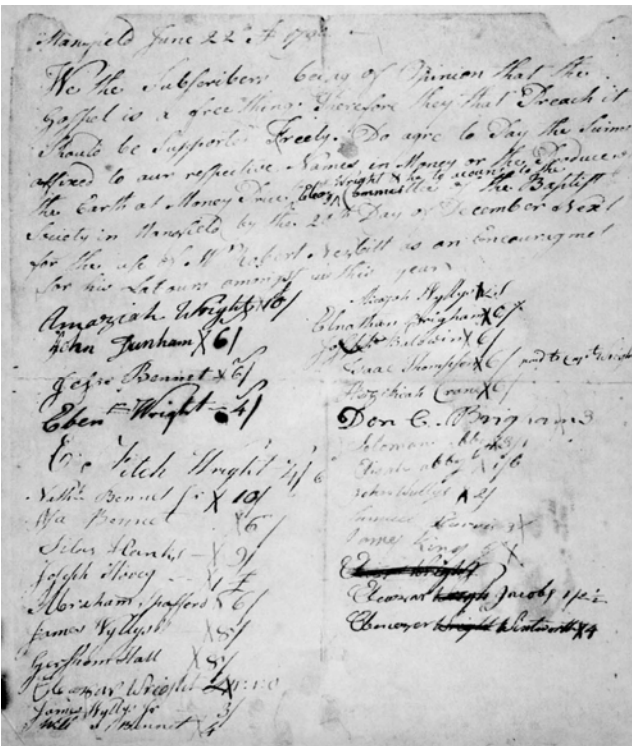 Mansfield June 22d A 17
We the Subscribers being of Opinion that the
Gospel is a free thing. Therefore they that Preach it
Should be Supported Freely. Do agre to Pay the Sums
affixed to our respective Names in Money or the Produce of
the Earth at Money Price, Eleazr Wright X he to acount to the
Committee of the Baptist
Society in Mansfield by the 20th Day of December Next
for the use of Mr Robert Nesbitt as an Encouragmet
for his Labours amongst us this year
Amaziah Wright X 10/
John Dunham X 6/
Jesse Bennet X 6/
Eben Wright 4/
Fitch Wright 4/6
Nathn Bennet X 10/
Asa Bennet X 6/
Silas Hanks X 9/
Joseph Storey
Abraham Spafford X 6/
James Wyllys X 8/
Gershom Hall X 8/
Eleazar Wright X 1:1:0
James Wyllys Jr 3/
Will Bennet X 4
Wyllys X
Elnathan Brigham X 6/
Baldwin X 6/
Isaac Thompson X 6/ paid to Capt Wright
Hezekiah Crane X 6/
Don C. Brigham 3
Solomon Abbe
Elijah Abby X 1/6
John Wyllys X 2/
James King X
Eleazar Jacobs
Ebenezer Wright Wentworth X 4